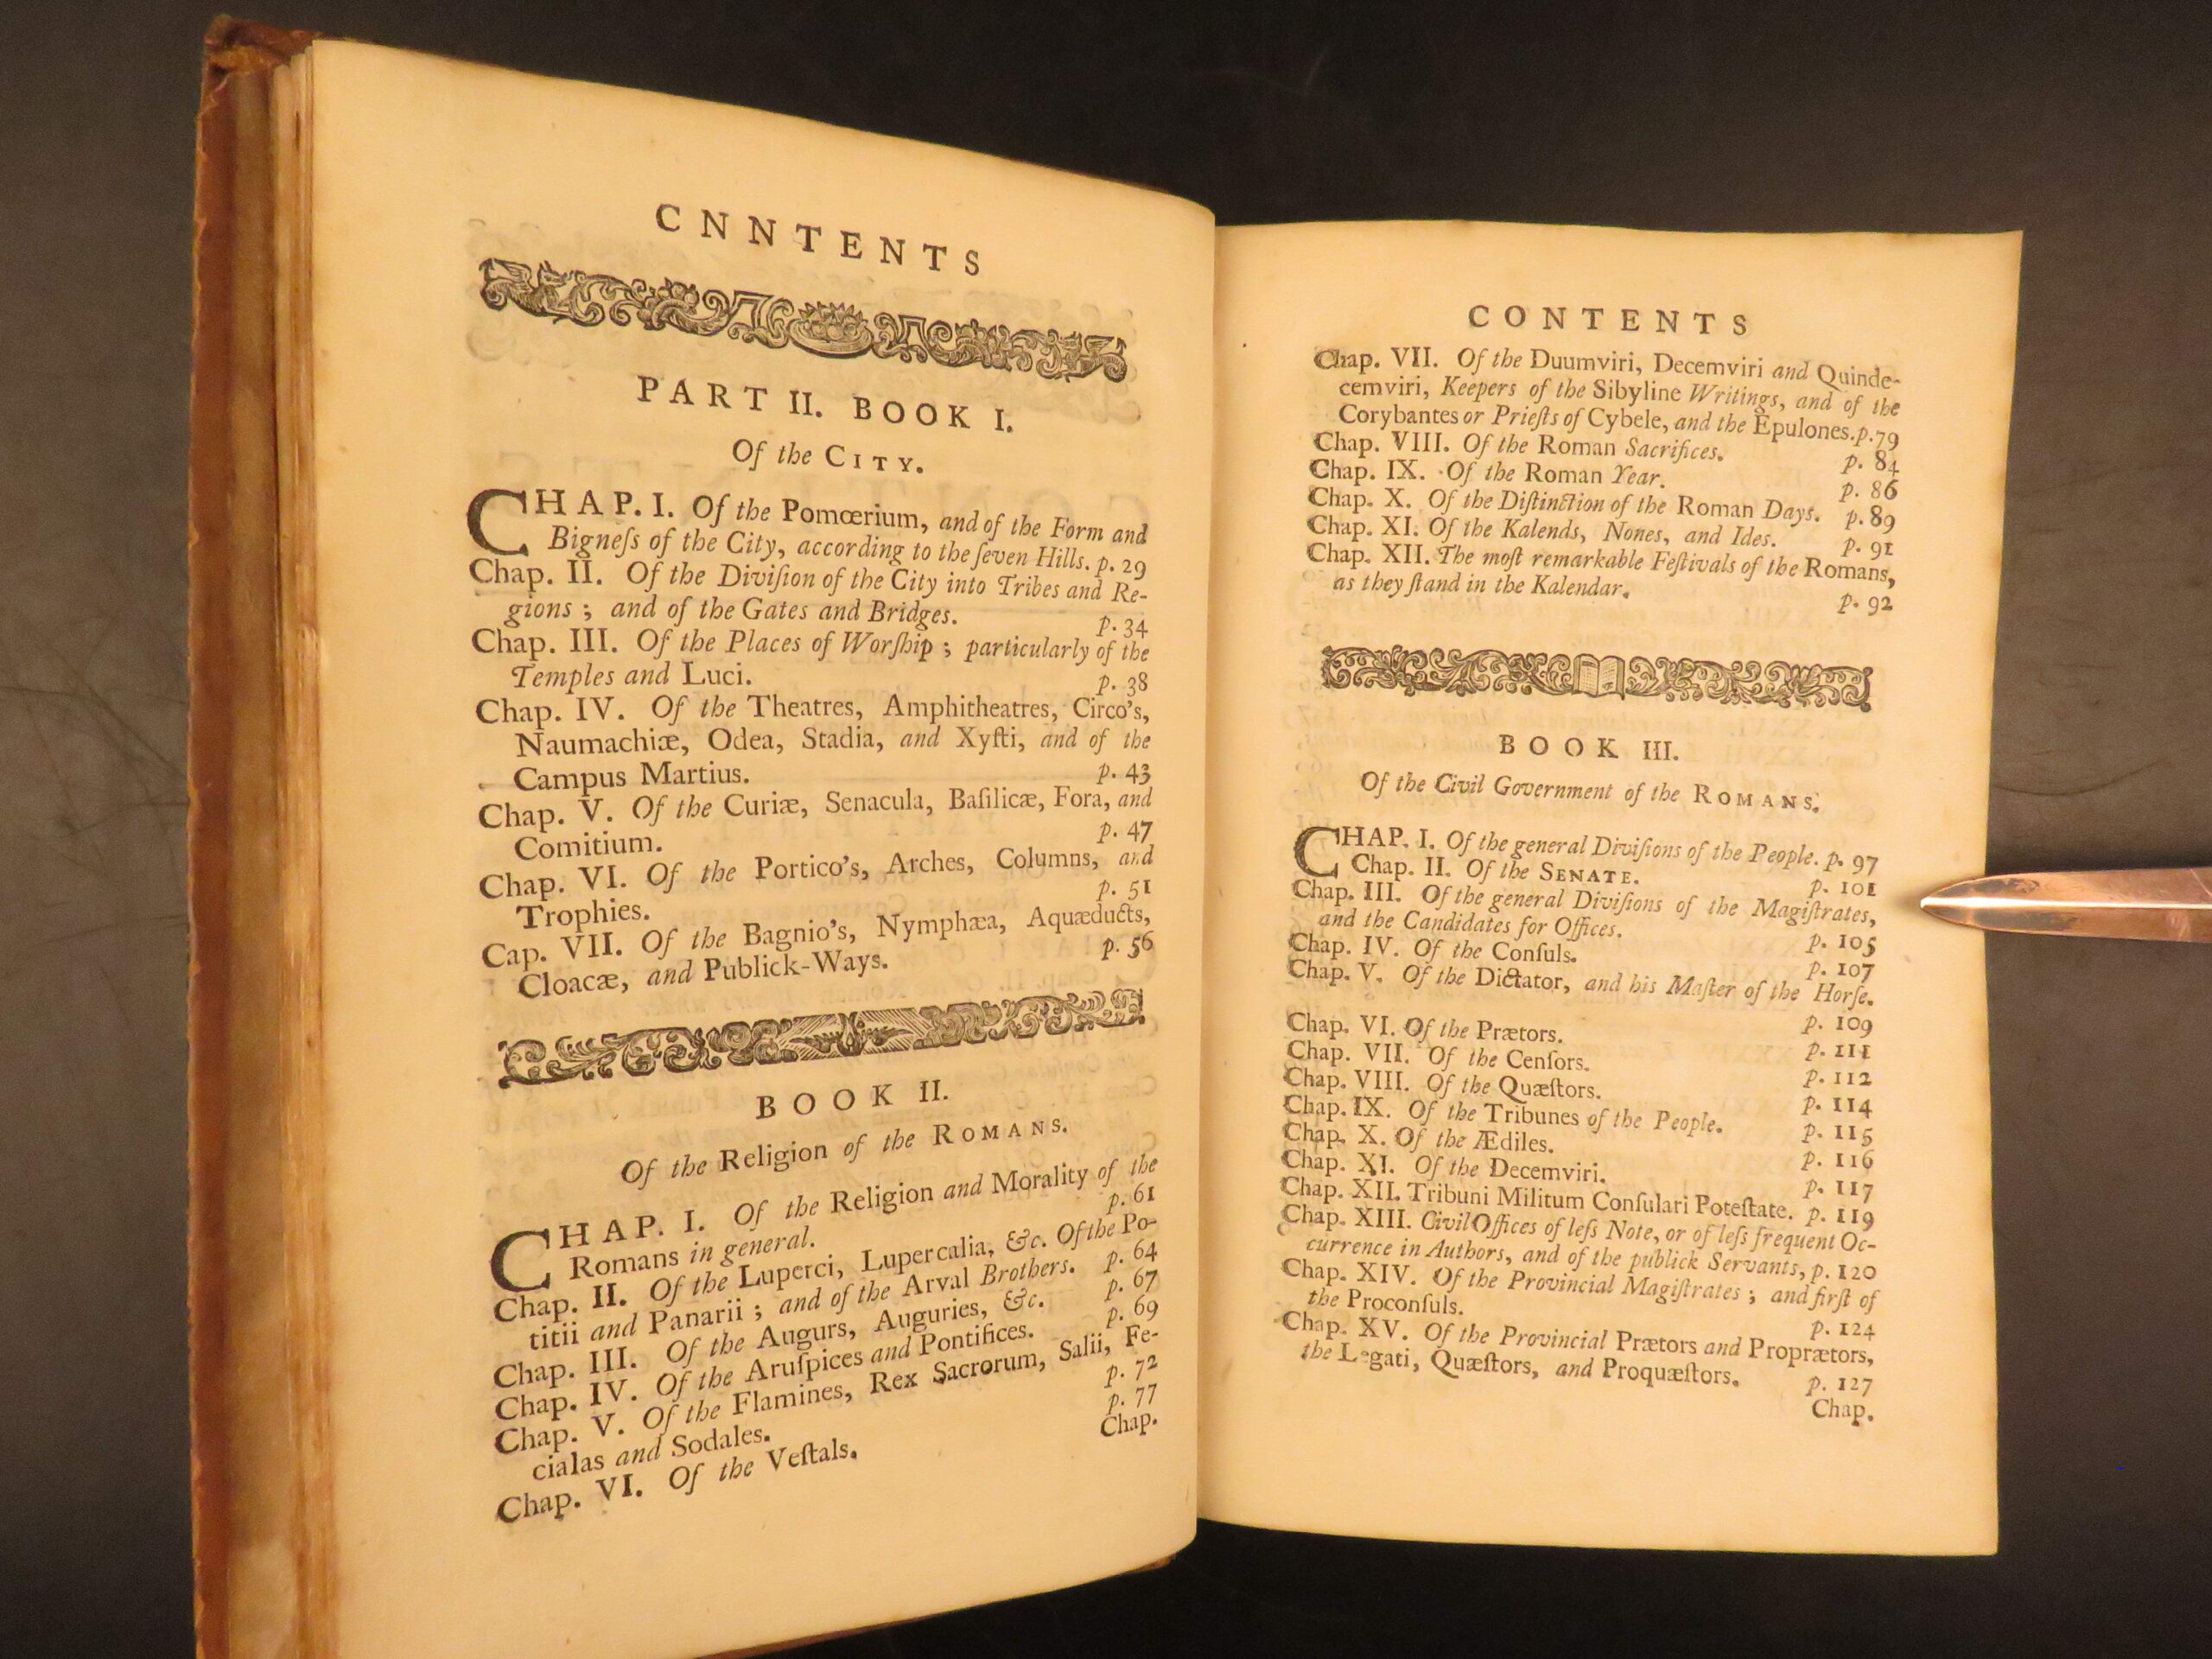 CNNTENTS
PART II. BOOK I.
Of the CITY.
CHAP. I. Of the Pomœrium, and of the Form and
Bigneſs of the City, according to the ſeven Hills. p. 29
Chap. II. Of the Diviſion of the City into Tribes and Re-
gions ; and of the Gates and Bridges. p. 34
Chap. III. Of the Places of Worſhip ; particularly of the
Temples and Luci. p. 38
Chap. IV. Of the Theatres, Amphitheatres, Circo's,
Naumachiæ, Odea, Stadia, and Xyſti, and of the
Campus Martius. p. 43
Chap. V. Of the Curiæ, Senacula, Baſilicæ, Fora, and
Comitium. p. 47
Chap. VI. Of the Portico's, Arches, Columns, and
Trophies. p. 51
Cap. VII. Of the Bagnio's, Nymphæa, Aquæducts,
Cloacæ, and Publick-Ways. p. 56
BOOK II.
Of the Religion of the ROMANS.
CHAP. I. Of the Religion and Morality of the
Romans in general. p. 61
Chap. II. Of the Luperci, Lupercalia, &c. Of the Po-
titii and Panarii ; and of the Arval Brothers. p. 64
Chap. III. Of the Augurs, Auguries, &c. p. 67
Chap. IV. Of the Aruſpices and Pontifices. p. 69
Chap. V. Of the Flamines, Rex Sacrorum, Salii, Fe-
cialas and Sodales. p. 72
Chap. VI. Of the Veſtals. p. 77
Chap.
CONTENTS
Chap. VII. Of the Duumviri, Decemviri and Quinde-
cemviri, Keepers of the Sibyline Writings, and of the
Corybantes or Prieſts of Cybele, and the Epulones. p. 79
Chap. VIII. Of the Roman Sacrifices. p. 84
Chap. IX. Of the Roman Year. p. 86
Chap. X. Of the Diſtinction of the Roman Days. p. 89
Chap. XI. Of the Kalends, Nones, and Ides. p. 91
Chap. XII. The moſt remarkable Feſtivals of the Romans,
as they ſtand in the Kalendar. p. 92
BOOK III.
Of the Civil Government of the ROMANS.
CHAP. I. Of the general Diviſions of the People. p. 97
Chap. II. Of the SENATE. p. 101
Chap. III. Of the general Diviſions of the Magiſtrates,
and the Candidates for Offices. p. 105
Chap. IV. Of the Conſuls. p. 107
Chap. V. Of the Dictator, and his Maſter of the Horſe.
p. 109
Chap. VI. Of the Prætors. p. 111
Chap. VII. Of the Cenſors. p. 112
Chap. VIII. Of the Quæſtors. p. 114
Chap. IX. Of the Tribunes of the People. p. 115
Chap. X. Of the Ædiles. p. 116
Chap. XI. Of the Decemviri. p. 117
Chap. XII. Tribuni Militum Conſulari Poteſtate. p. 119
Chap. XIII. Civil Offices of leſs Note, or of leſs frequent Oc-
currence in Authors, and of the publick Servants, p. 120
Chap. XIV. Of the Provincial Magiſtrates ; and firſt of
the Proconſuls. p. 124
Chap. XV. Of the Provincial Prætors and Proprætors,
the Legati, Quæſtors, and Proquæſtors. p. 127
Chap.